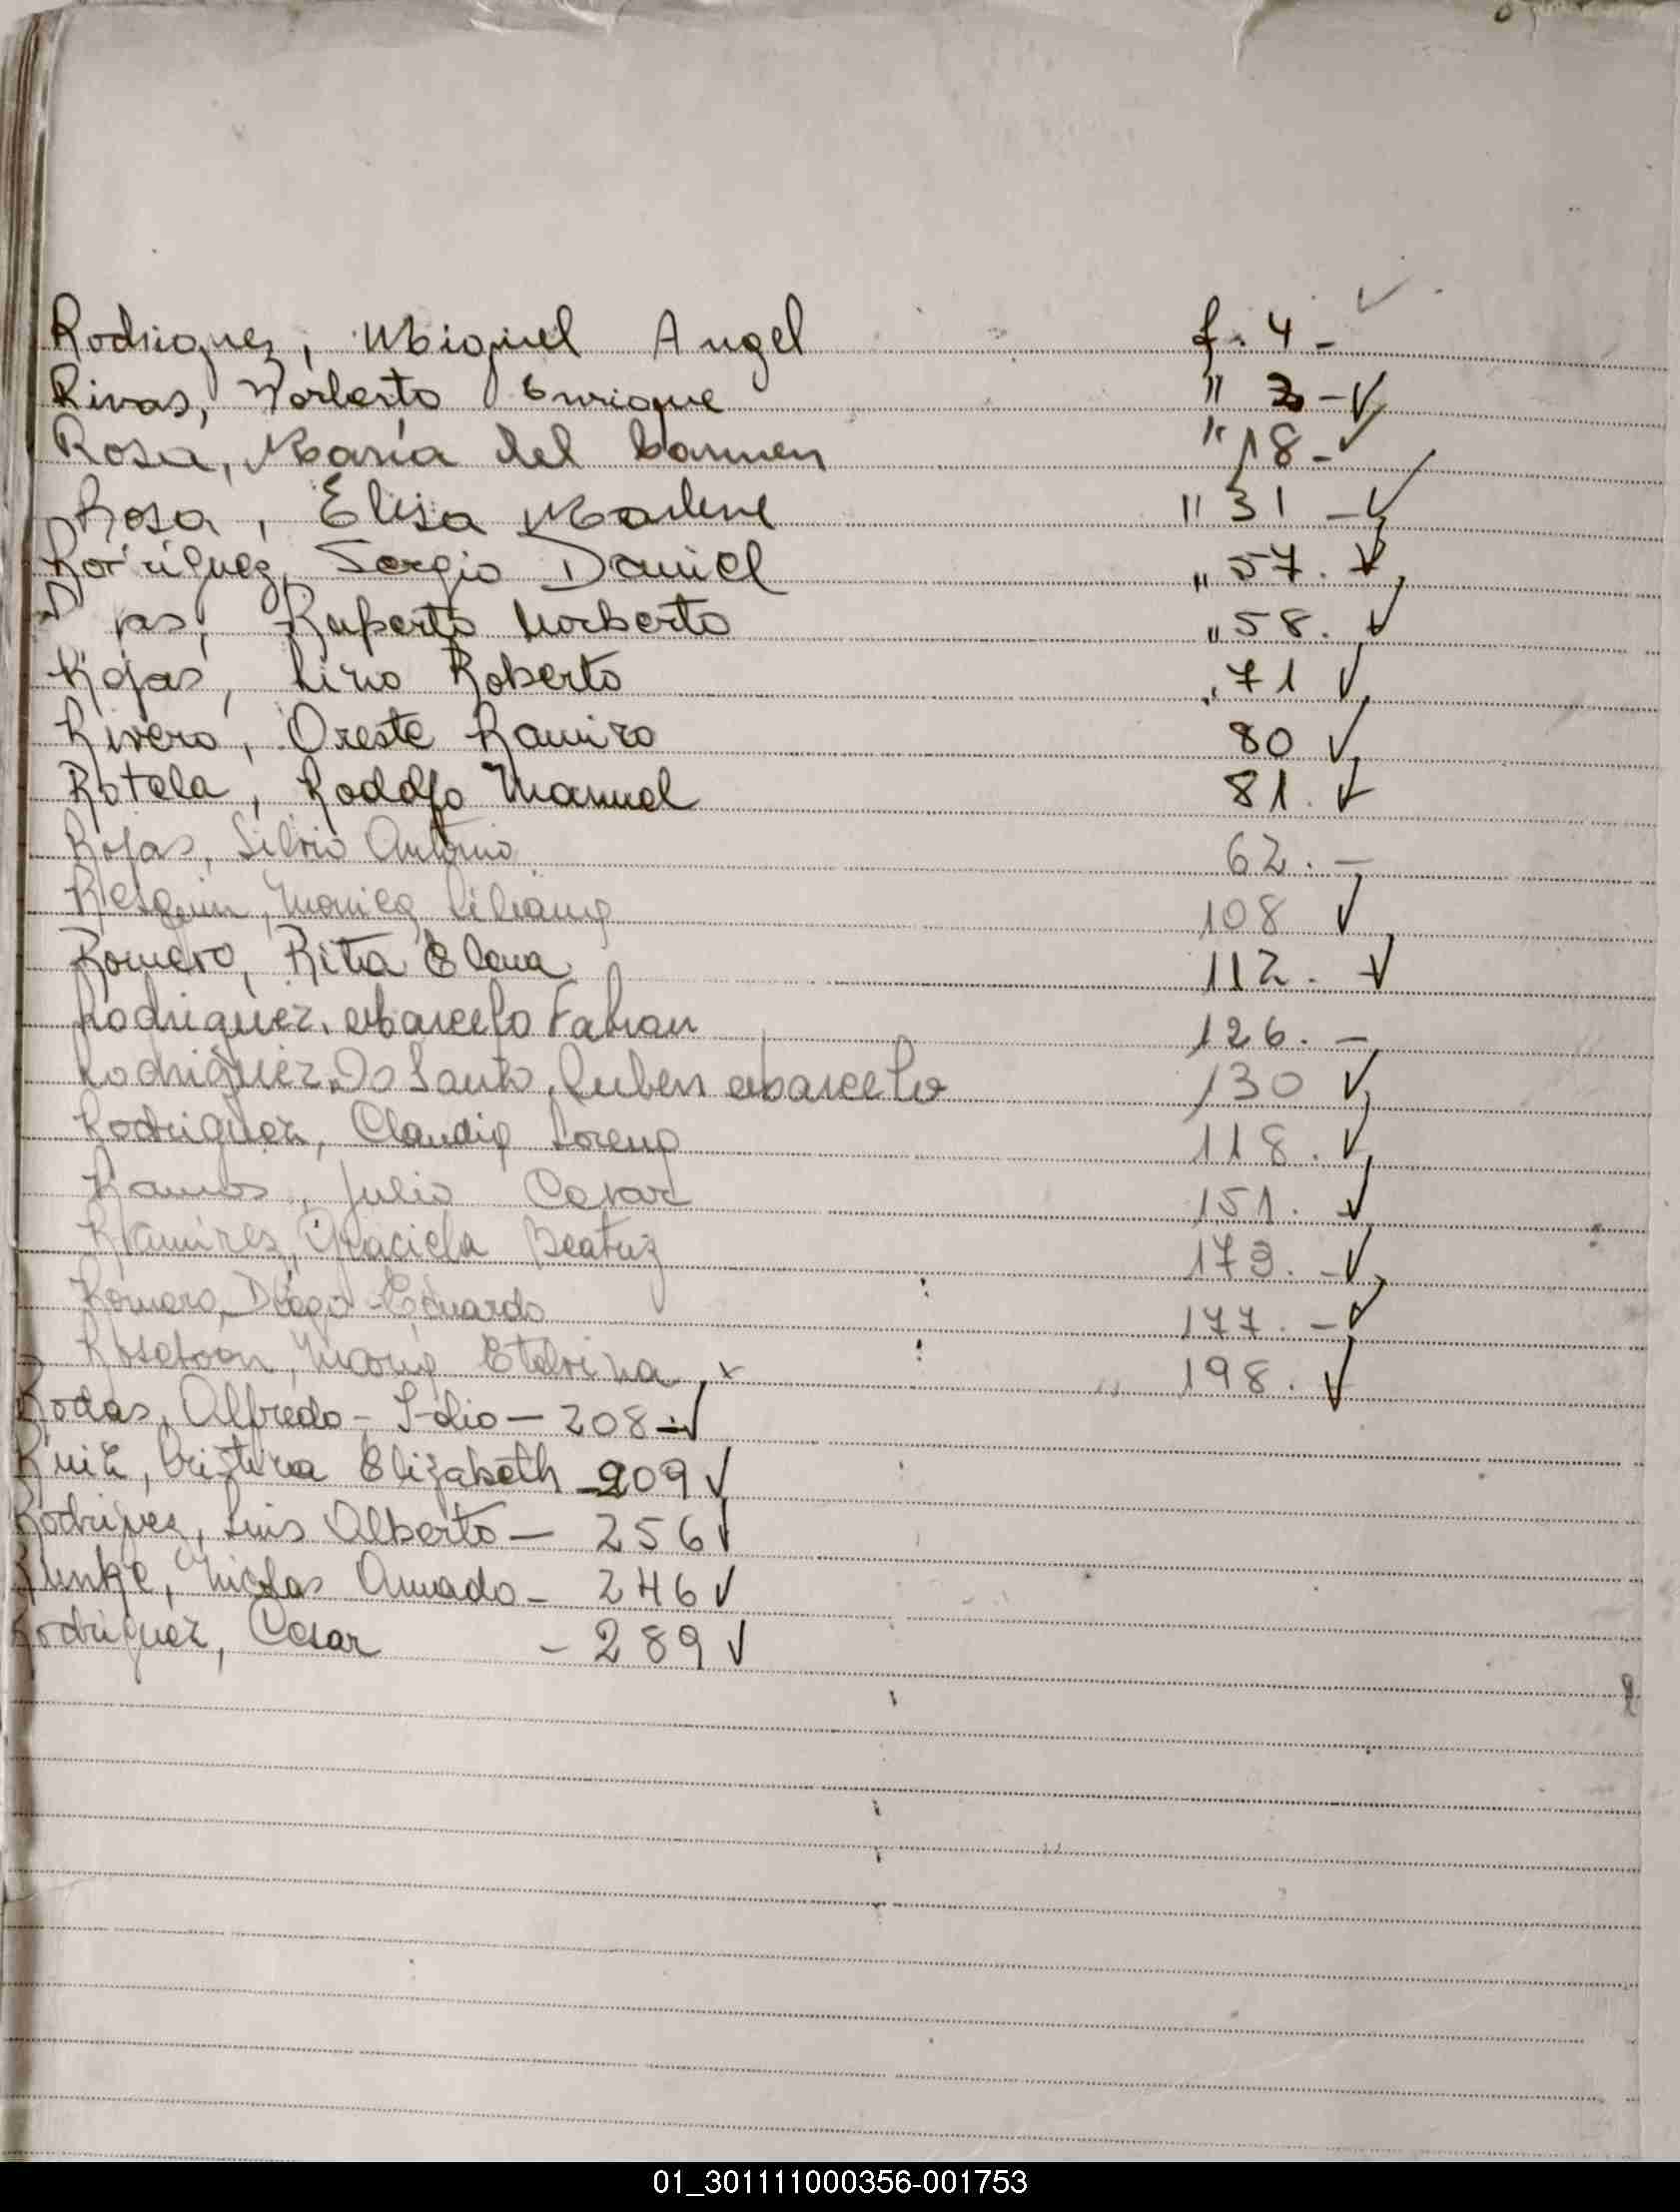 Rodriguez, Miguel Angel f. 4 - ✓
Rivas, Norberto Enrique " 3 - ✓
Rosa, Maria del Carmen " 18 - ✓
Rosa, Elisa Marlene " 31 - ✓
Rodriguez, Sergio Daniel " 57. ✓
jas, Ruperto Norberto " 58. ✓
Rojas, Lino Roberto " 71 ✓
Rivero, Oreste Ramiro 80 ✓
Rotela, Rodolfo Manuel 81. ✓
Rojas, Silvio Antonio 62. -
Resquin, Monica Liliana 108 ✓
Romero, Rita Elena 112. ✓
Rodriguez, Marcelo Fabian 126. -
Rodriguez Do Santo, Ruben Marcelo 130 ✓
Rodriguez, Claudia Lorena 118. ✓
Ramos, Julio Cesar 151. ✓
Ramires, Graciela Beatriz 173. - ✓
Romero, Diego Eduardo 177. - ✓
Maria Etelvina x 198. ✓
Rodas, Alfredo - Idio - 208 - ✓
Ruiz, Cristina Elizabeth - 209 ✓
Rodriguez, Luis Alberto - 256 ✓
Runke, Nicolas Amado - 246 ✓
Rodriguez, Cesar - 289 ✓
01_301111000356-001753